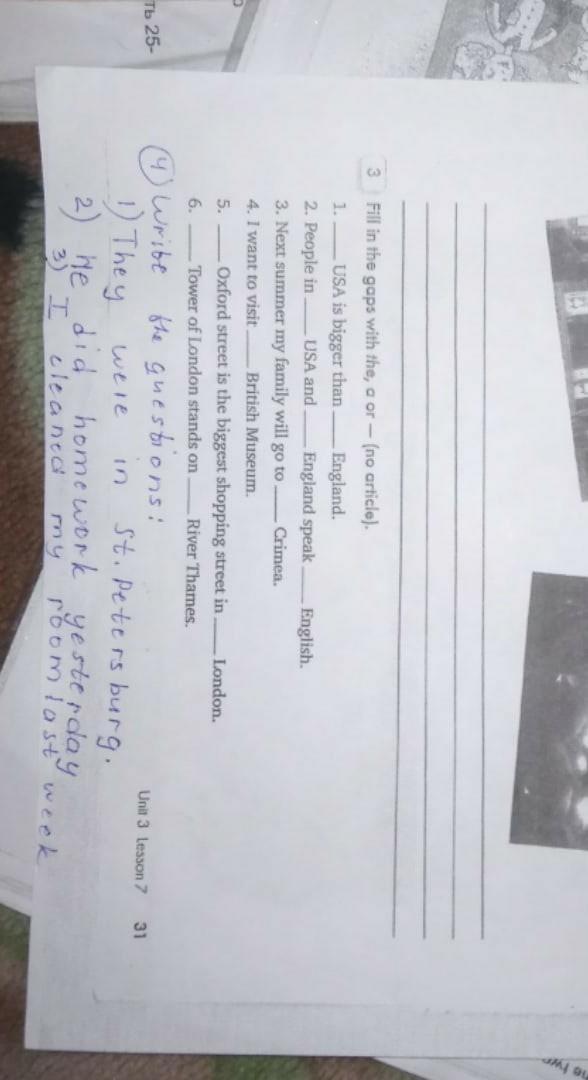 3 Fill in the gaps with the, a or — (no article).
1. ____ USA is bigger than ____ England.
2. People in ____ USA and ____ England speak ____ English.
3. Next summer my family will go to ____ Crimea.
4. I want to visit ____ British Museum.
5. ____ Oxford street is the biggest shopping street in ____ London.
6. ____ Tower of London stands on ____ River Thames.
Unit 3 Lesson 7 31
4) Write the questions:
1) They were in St. Petersburg.
2) He did homework yesterday
3) I cleaned my room last week
ть 25-